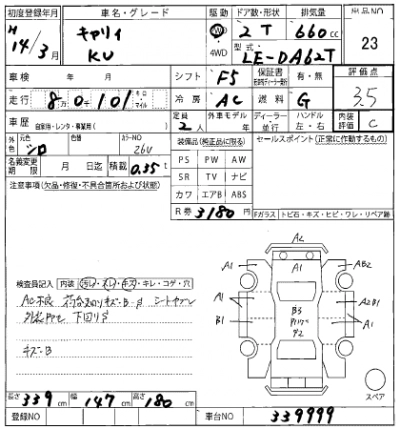 初度登録年月 車名・グレード 駆動 ドア数・形状 排気量 出品NO
H14/3月 キャリィ KU 4WD 2 T 660cc 23
型式 LE-DA62T
車検 年 月 シフト F5 保証書 有・無 評価点
走行 8万0千101 キロ マイル 冷房 AC 燃料 G 3.5
車歴 自家用・レンタ・事業用( ) 定員 2人 外車モデル 年 ディーラー・並行 ハンドル 左・右 内装評価 C
外色 元色 シロ 色替 カラーNO 26U 装備品(純正品に限る) セールスポイント(正常に作動するもの)
名義変更期限 月 日迄 積載 0.35t PS PW AW
注意事項(欠品・修復・不具合箇所および状態) SR TV ナビ
カワ エアB ABS
R券 3180円 Fガラス トビ石・キズ・ヒビ・ワレ・リペア跡
A2
A1 A1 AB2
検査員記入 内装 汚レ・スレ・キズ・キレ・コゲ・穴
AC不良 荷台まわりキズ・B
A1 A1 B3 A2B1
下回りS B1 A2 A1
キズ・B
スペア
長さ 339cm 幅 147cm 高さ 180cm
登録NO 車台NO 339999